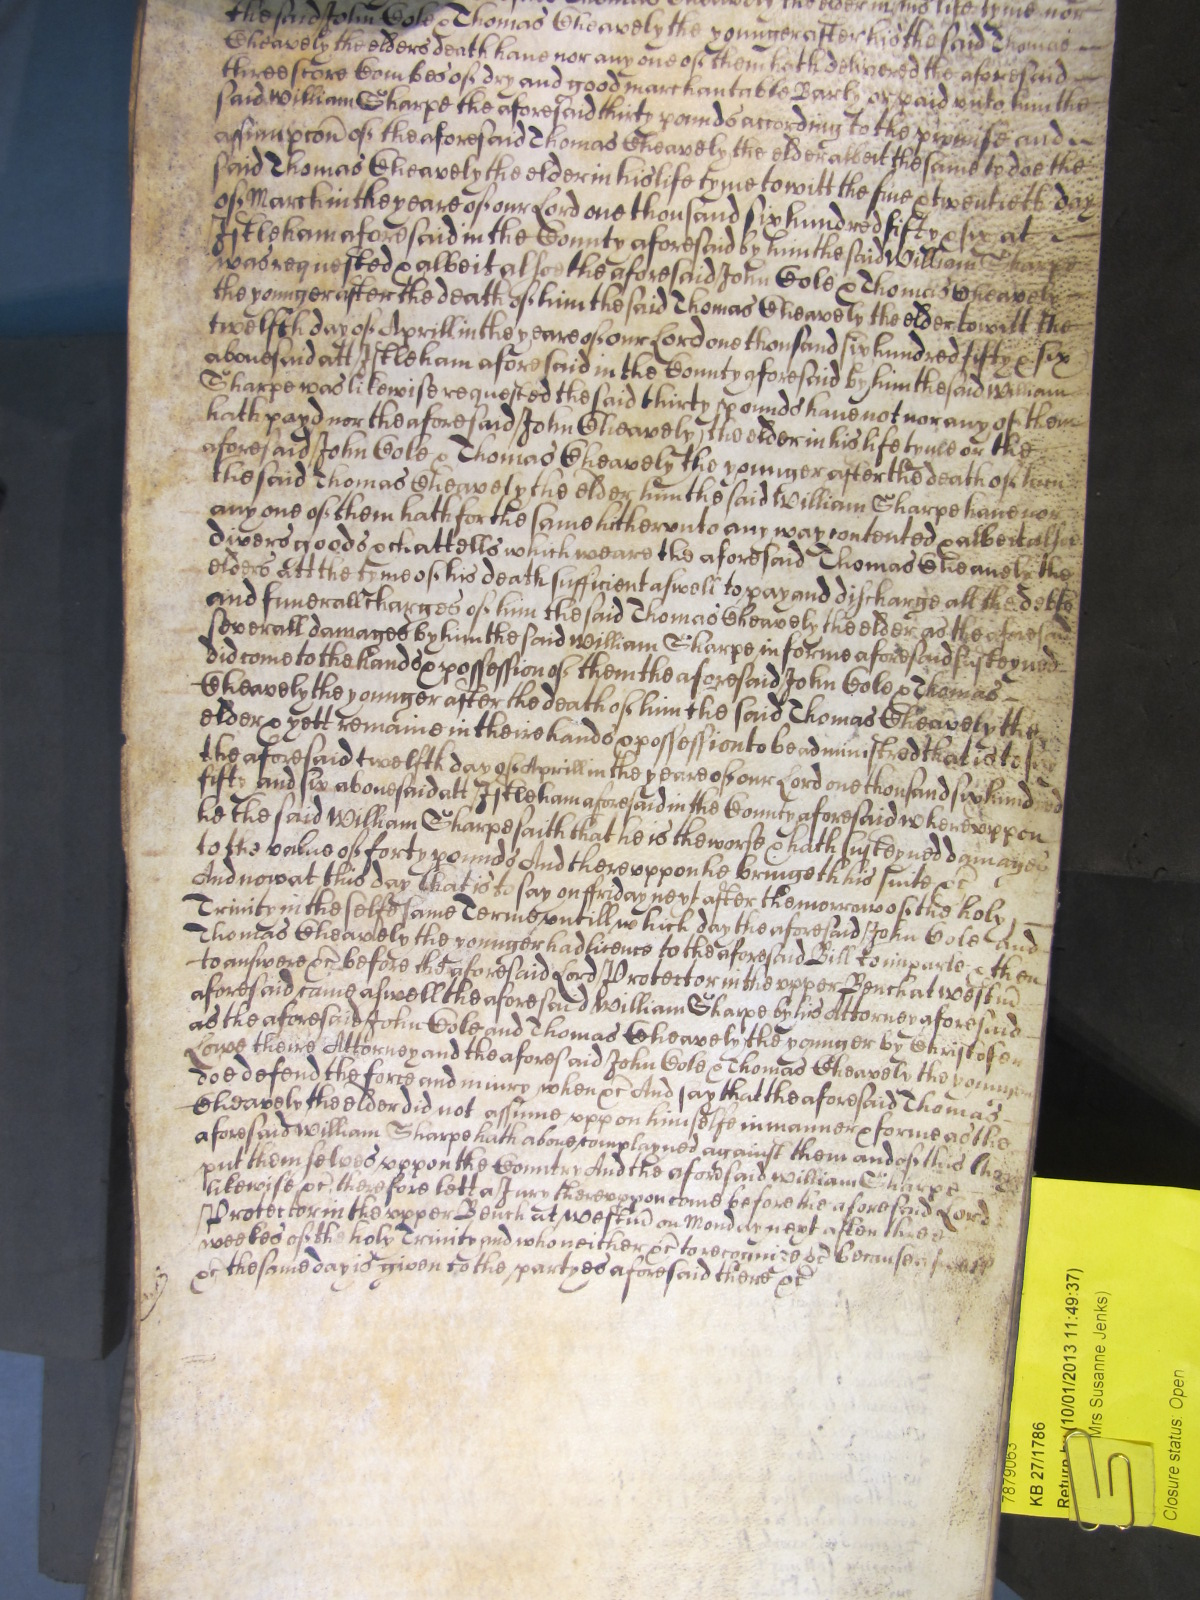 Thomas Cheavely the elder in his life tyme nor
the said John Cole & Thomas Cheavely the younger after his the said Thomas
Cheavely the elders death haue nor any one of them hath delivered the aforesaid
threescore Combes of dry and good marchantable Barly or paid vnto him the
said William Sharpe the aforesaid thirty pounds according to the promise and
assumpcon of the aforesaid Thomas Cheavely the elder albeit the same to doe the
said Thomas Cheavely the elder in his life tyme to witt the fiue & twentieth day
of March in the yeare of our Lord one thousand six hundred fifty & six at
Istleham aforesaid in the County aforesaid by him the said William Sharpe
was requested & albeit alsoe the aforesaid John Cole & Thomas Cheavely
the younger after the death of him the said Thomas Cheavely the elder to witt the
twelfth day of Aprill in the yeare of our Lord one thousand six hundred fifty & six
abouesaid att Istleham aforesaid in the County aforesaid by him the said William
Sharpe was likewise requested the said thirty pounds haue not nor any of them
hath payd nor the aforesaid John Cheavely the elder in his life tyme or the
aforesaid John Cole & Thomas Cheavely the younger after the death of him
the said Thomas Cheavely the elder him the said William Sharpe haue nor
any one of them hath for the same hithervnto any way contented & albeit alsoe
divers goods & chattells which weare the aforesaid Thomas Cheauely the
elders att the tyme of his death sufficient aswell to pay and discharge all the debts
and funerall charges of him the said Thomas Cheavely the elder as the aforesaid
severall damages by him the said William Sharpe in forme aforesaid susteyned
did come to the hands & possession of them the aforesaid John Cole & Thomas
Cheavely the younger after the death of him the said Thomas Cheavely the
elder & yett remaine in theire hands & possession to be administred that is to say
the aforesaid twelfth day of Aprill in the yeare of our Lord one thousand six hundred
fifty and six abouesaid att Istleham aforesaid in the County aforesaid wherevppon
he the said William Sharpe saith that he is the worse & hath susteyned damages
to the value of forty pounds And therevppon he bringeth his suite &c
And now at this day that is to say on ffriday next after the morrow of the holy
Trinity in the selfe same Terme vntill which day the aforesaid John Cole and
Thomas Cheavely the younger had licence to the aforesaid Bill to imparle & then
to answere &c before the aforesaid Lord Protector in the vpper Bench at Westm
aforesaid came aswell the aforesaid William Sharpe by his Attorney aforesaid
as the aforesaid John Cole and Thomas Cheavely the younger by Christofer
Lowe theire Attorney and the aforesaid John Cole & Thomas Cheavely the younger
doe defend the force and iniury when &c And say that the aforesaid Thomas
Cheavely the elder did not assume vppon himselfe in manner & forme as the
aforesaid William Sharpe hath aboue complayned against them and of this they
put themselves vppon the Country And the aforesaid William Sharpe
likewise &c therefore lett a Jury therevppon come before the aforesaid Lord
Protector in the vpper Bench at Westm on Monday next after three
weekes of the holy Trinity and who neither &c to recognize &c because aswell
&c the same day is given to the partyes aforesaid there &c
7879063
KB 27/1786
Return by (10/01/2013 11:49:37)
Mrs Susanne Jenks)
Closure status: Open